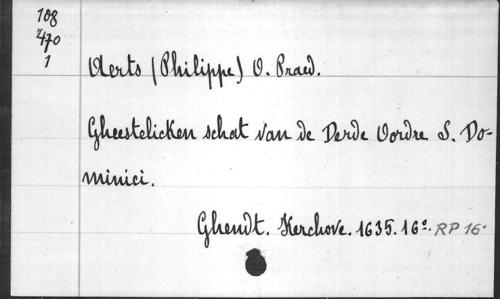 108
470
1
Aerts (Philippe) O. Praed.
Gheestelicken schat van de Derde Oordre S. Do-
minici.
Ghendt. Kerchove. 1635. 16º. RP 16º